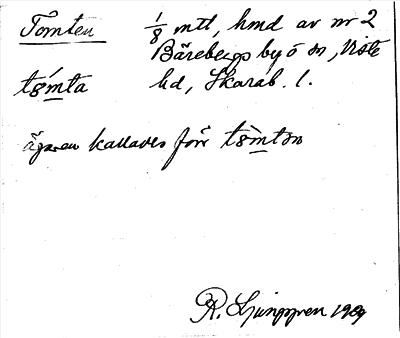 Tomten 1/8 mtl, hmd av nr 2
Bärebergs by ö sn, Viste
tómta hd, Skarab. l.
ägaren kallades för tòmtən
R. Ljunggren 1909